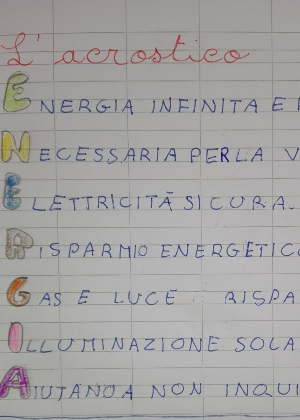 L'acrostico
ENERGIA INFINITA E
NECESSARIA PER LA
ELETTRICITÀ SICURA.
RISPARMIO ENERGETICO
GAS E LUCE
ILLUMINAZIONE
AIUTANO A NON